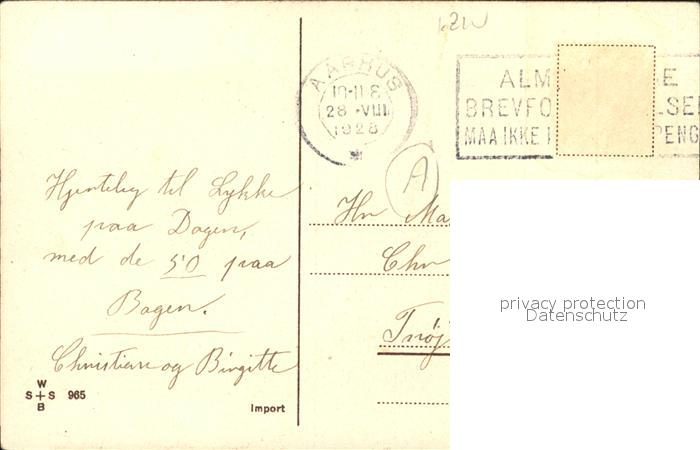 AARHUS
10-11 E
28 -VIII
1928
ALM E
BREVFO LSE
MAA IKKE PENG
A
Hjertelig til Lykke
paa Dagen,
med de 50 paa
Bagen.
Christian og Birgitte
Hr Ma
Chr
W
S+S 965
B
Import
privacy protection
Datenschutz